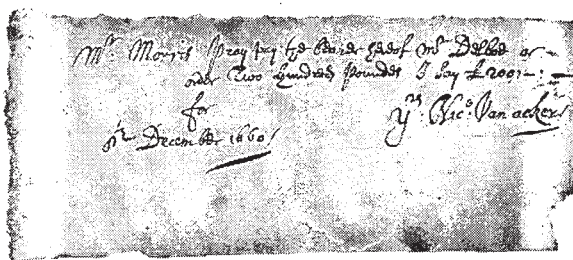 Mr. Morris I pray pay the bearer hereof Mr Delboe or
order Two hundred pounds I say £ 200:—:—
for
Yrs. Nic: Vanacker
December 1660